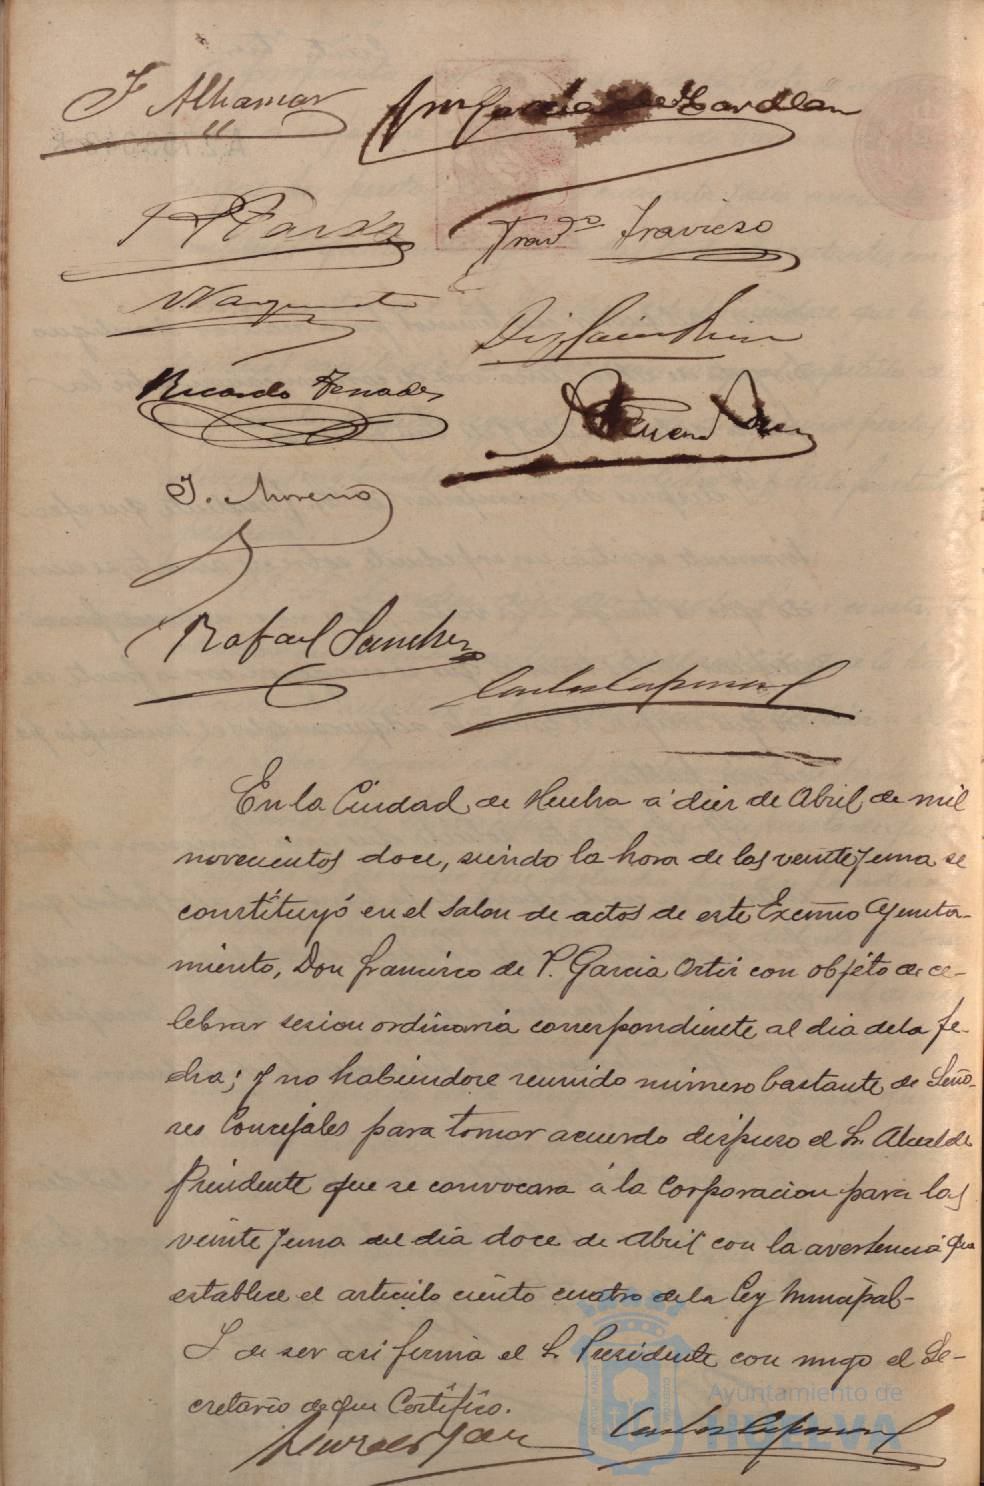 F Alhamar
Travieso
V. Vazquez
Ricardo Terrades
J. Moreno
Rafael Sanchez
En la Ciudad de Huelva á diez de Abril de mil
novecientos doce, siendo la hora de las veinte y una se
constituyó en el Salon de actos de este Excmo Ayunta-
miento, Don Francisco de P. Garcia Ortiz con objeto de ce-
lebrar sesion ordinaria correspondiente al dia de la fe-
cha; y no habiendose reunido número bastante de Seño-
res Concejales para tomar acuerdo dispuso el Sr. Alcalde
Presidente que se convocara á la Corporacion para las
veinte y una del dia doce de Abril con la advertencia que
establece el articulo ciento cuatro de la Ley Municipal-
Y de ser asi firma el Sr. Presidente con migo el Se-
cretario de que Certifico.
Ayuntamiento de
HUELVA